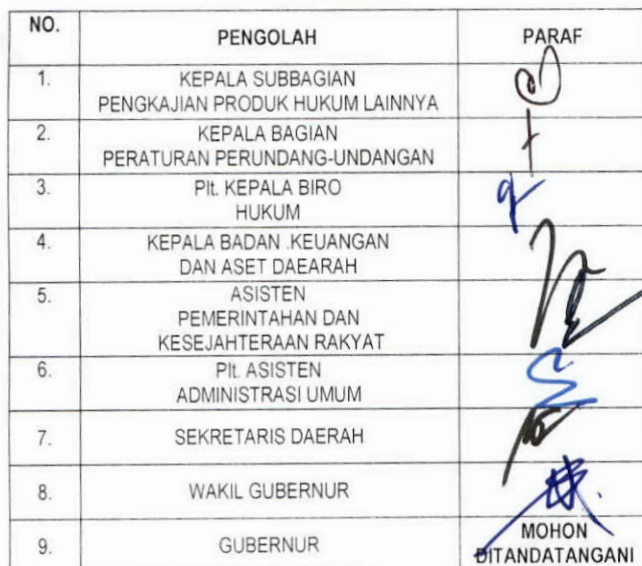 NO. PENGOLAH PARAF
1. KEPALA SUBBAGIAN
PENGKAJIAN PRODUK HUKUM LAINNYA
2. KEPALA BAGIAN
PERATURAN PERUNDANG-UNDANGAN
3. Plt. KEPALA BIRO
HUKUM
4. KEPALA BADAN .KEUANGAN
DAN ASET DAEARAH
5. ASISTEN
PEMERINTAHAN DAN
KESEJAHTERAAN RAKYAT
6. Plt. ASISTEN
ADMINISTRASI UMUM
7. SEKRETARIS DAERAH
8. WAKIL GUBERNUR
9. GUBERNUR MOHON
DITANDATANGANI